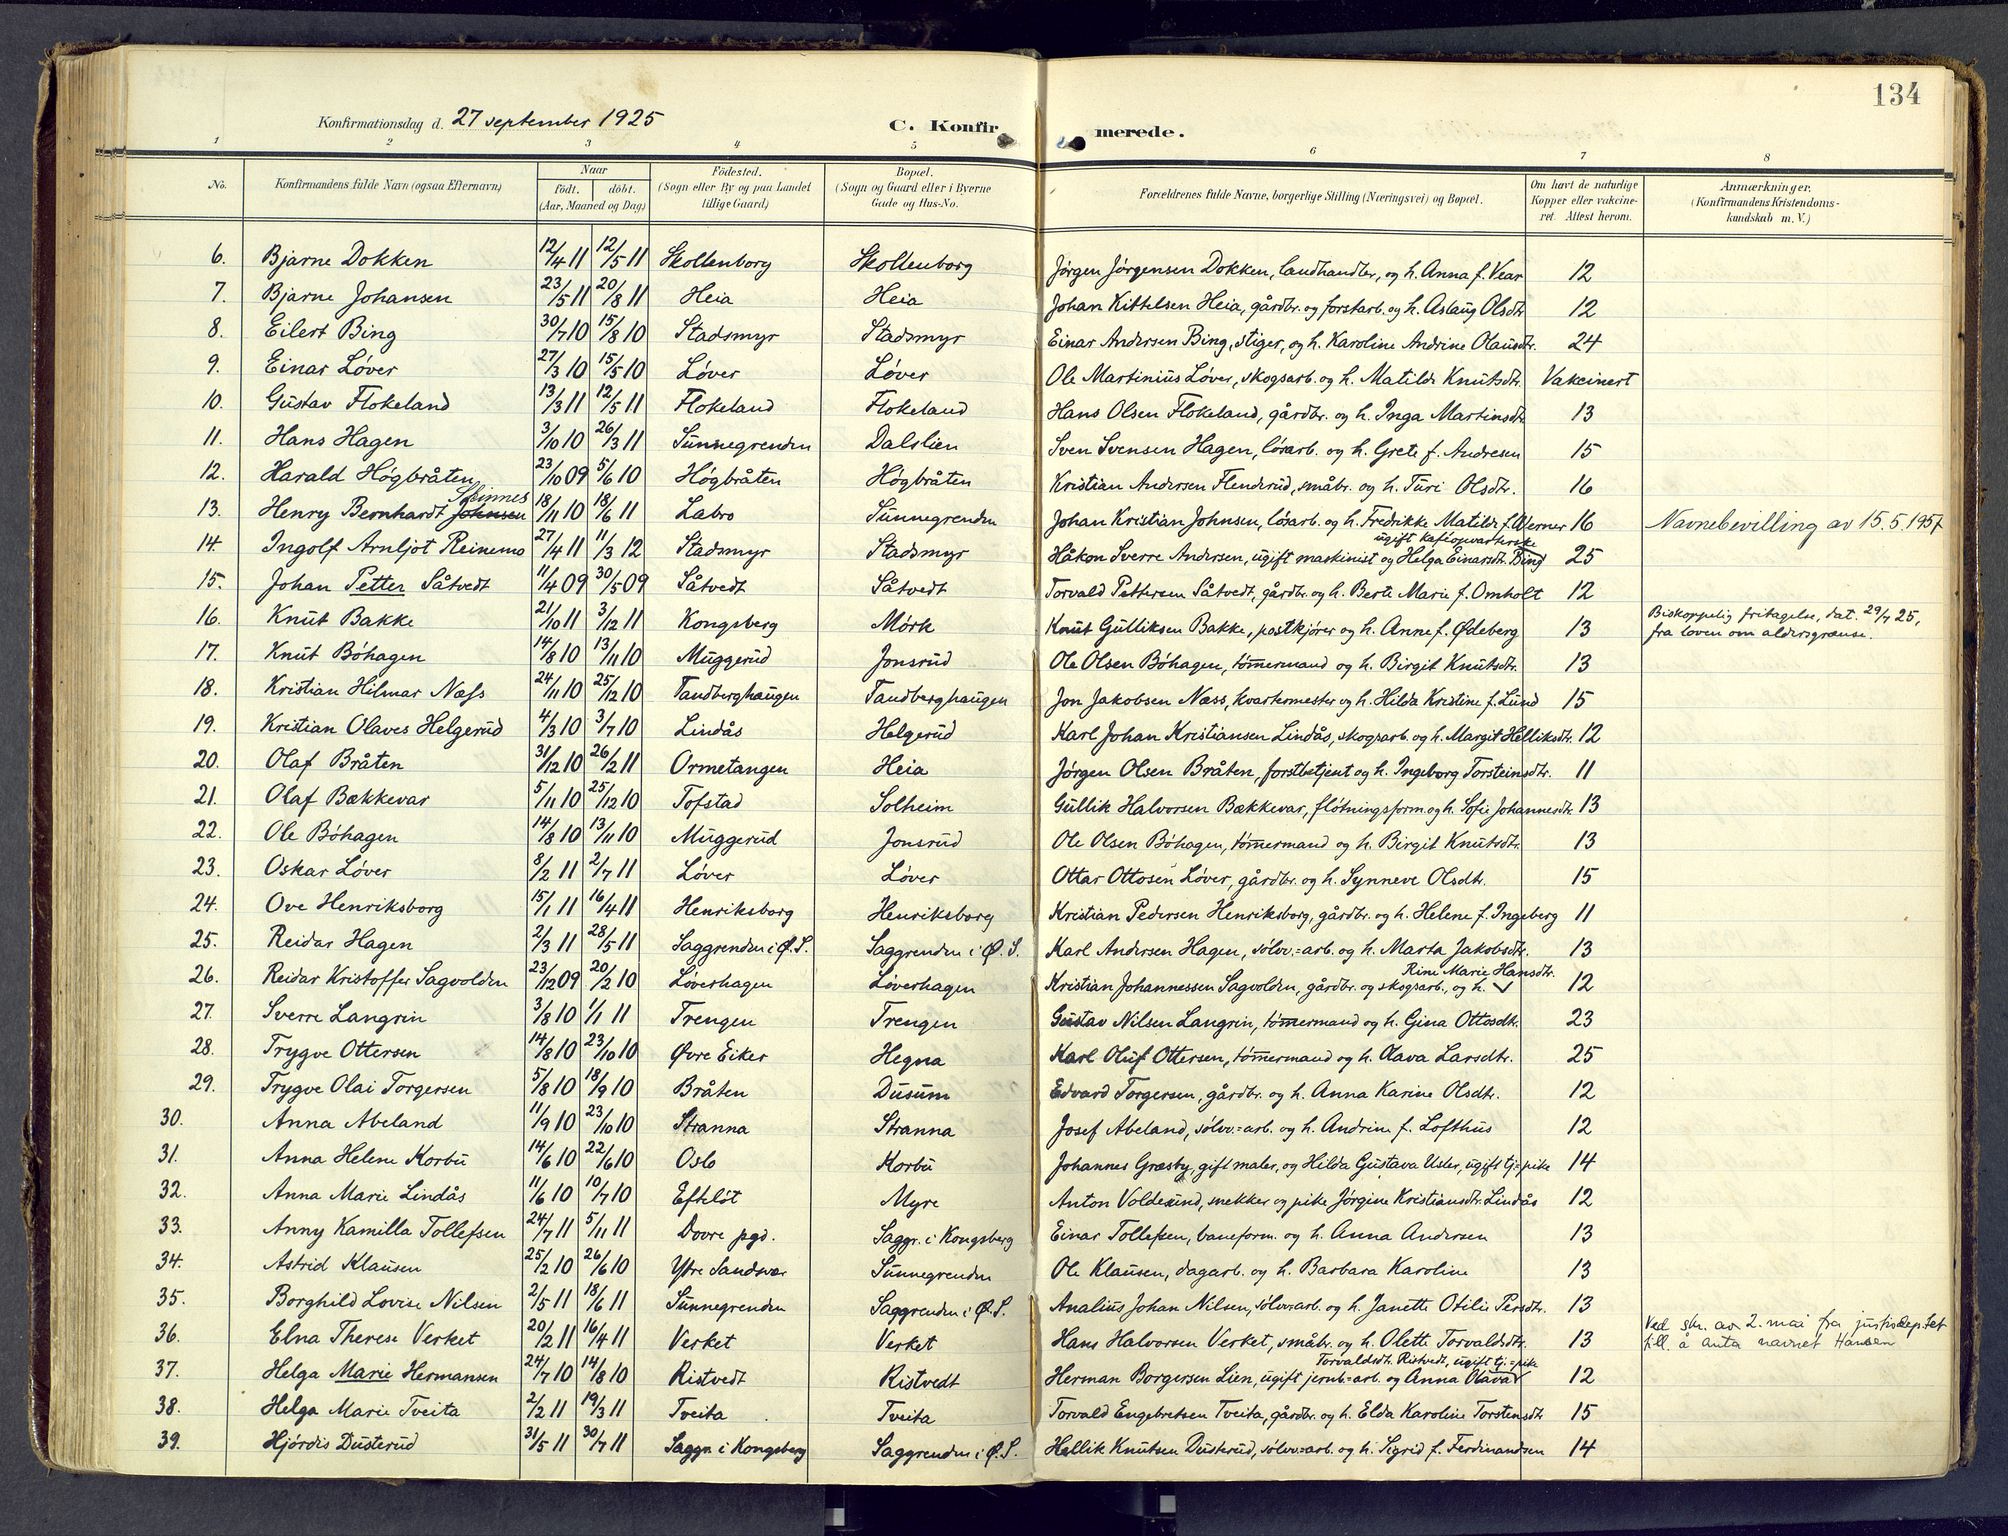 134
Konfirmationsdag d. 27 september 1925
C. Konfirmerede.
1 2 3 4 5 6 7 8
No. | Konfirmandens fulde Navn (ogsaa Efternavn) | Naar født. døbt. (Aar, Maaned og Dag) | Fødested. (Sogn eller By og paa Landet tillige Gaard) | Bopæl. (Sogn og Gaard eller i Byerne Gade og Hus-No. | Forældrenes fulde Navne, borgerlige Stilling (Næringsvei) og Bopæl. | Om havt de naturlige Kopper eller vakcineret. Attest herom. | Anmærkninger. (Konfirmandens Kristendomskundskab m. V.)
6. Bjarne Dokken 12/4 11 12/5 11 Skollenborg Skollenborg Jørgen Jørgensen Dokken, landhandler, og h. Anna f. Vear 12
7. Bjarne Johansen 23/5 11 20/8 11 Heia Heia Johan Kittelsen Heia, gårdbr. og forstarb. og h. Aslaug Olsdtr 12
8. Eilert Bing 30/7 10 15/8 10 Stadsmyr Stadsmyr Einar Andersen Bing, stiger, og h. Karoline Andrine Olausdtr. 24
9. Einar Løver 27/3 10 15/5 10 Løver Løver Ole Martinius Løver, skogsarb. og h. Matilde Knutsdtr. Vakcinert
10. Gustav Flokeland 13/3 11 12/5 11 Flokeland Flokeland Hans Olsen Flokeland, gårdbr. og h. Inga Martinsdtr 13
11. Hans Hagen 3/10 10 26/3 11 Sunnegrenden Dalslien Sven Svensen Hagen, lösarb. og h. Grete f. Andresen 15
12. Harald Högbråten 23/10 09 5/6 10 Högbråten Högbråten Kristian Andersen Flenderud, småbr. og h. Turi Olsdtr. 16
13. Henry Bernhardt Johnsen Steinnes 18/11 10 18/6 11 Labro Sunnegrenden Johan Kristian Johnsen, lösarb. og h. Fredrikke Matilde f. Werner 16 Navnebevilling av 15.5.1957
14. Ingolf Arnljot Reinemo 27/4 11 11/3 12 Stadsmyr Stadsmyr Håkon Sverre Andersen, ugift maskinist og Helga Einarsdtr. Bing ugift kaféopvarterske 25
15. Johan Petter Såtvedt 11/4 09 30/5 09 Såtvedt Såtvedt Torvald Pettersen Såtvedt, gårdbr. og h. Berte Marie f. Omholt 12
16. Knut Bakke 21/10 11 3/12 11 Kongsberg Mörk Knut Gulliksen Bakke, postkjører og h. Anne f. Ødeberg 13 Biskoppelig fritagelse, dat. 29/7 25, fra loven om aldersgrænse.
17. Knut Böhagen 14/8 10 13/11 10 Muggerud Jonsrud Ole Olsen Böhagen, tömmermand og h. Birgit Knutsdtr. 13
18. Kristian Hilmar Næss 24/11 10 25/12 10 Tandberghaugen Tandberghaugen Jon Jakobsen Næss, kvartermester og h. Hilda Kristine f. Lund 15
19. Kristian Olaves Helgerud 4/3 10 3/7 10 Lindås Helgerud Karl Johan Kristiansen Lindås, skogsarb. og h. Margit Helliksdtr. 12
20. Olaf Bråten 31/12 10 26/2 11 Ormetangen Heia Jørgen Olsen Bråten, forstbetjent og h. Ingeborg Torsteinsdtr. 11
21. Olaf Bækkevar 5/11 10 25/12 10 Tofstad Solheim Gullik Halvorsen Bækkevar, flötningsform. og h. Sofie Johannesdtr. 13
22. Ole Böhagen 14/8 10 13/11 10 Muggerud Jonsrud Ole Olsen Böhagen, tömmermand og h. Birgit Knutsdtr. 13
23. Oskar Löver 8/2 11 2/7 11 Löver Löver Ottar Ottosen Löver, gårdbr. og h. Synneve Olsdtr. 15
24. Ove Henriksborg 15/1 11 16/4 11 Henriksborg Henriksborg Kristian Pedersen Henriksborg, gårdbr. og h. Helene f. Ingeberg 11
25. Reidar Hagen 2/3 11 28/5 11 Saggrenden i Ø. S. Saggrenden i Ø. S. Karl Andersen Hagen, sølvv.=arb. og h. Marta Jakobsdtr. 13
26. Reidar Kristoffer Sagvolden 23/12 09 20/2 10 Löverhagen Löverhagen Kristian Johannessen Sagvolden, gårdbr. og skogsarb., og h. Rine Marie Hansdtr. 12
27. Sverre Langrin 3/8 10 1/1 11 Trengen Trengen Gustav Nilsen Langrin, tömmermand og h. Gina Ottosdtr. 23
28. Trygve Ottersen 14/8 10 23/10 10 Øvre Eiker Hegna Karl Oluf Ottersen, tömmermand og h. Olava Larsdtr. 25
29. Trygve Olai Torgersen 5/8 10 18/9 10 Bråten Dusum Edvard Torgersen, gårdbr. og h. Anna Karine Olsdtr. 12
30. Anna Abeland 11/9 10 23/10 10 Stranna Stranna Josef Abeland, sølvv.=arb. og h. Andrine f. Lofthus 12
31. Anna Helene Korbu 14/6 10 22/6 10 Oslo Korbu Johannes Græsby, gift maler, og Hilda Gustava Usler, ugift tj.=pike 14
32. Anna Marie Lindås 11/6 10 10/7 10 Efteløt Myre Anton Voldesund, snekker og pike Jørgine Kristiansdtr. Lindås 12
33. Anny Kamilla Tollefsen 24/7 11 5/11 11 Dovre pgd. Saggr. i Kongsberg Einar Tollefsen, baneform. og h. Anna Andersen 13
34. Astrid Klausen 25/2 10 26/6 10 Ytre Sandsvær Sunnegrenden Ole Klausen, dagarb. og h. Barbara Karoline 13
35. Borghild Lovise Nilsen 2/5 11 18/6 11 Sunnegrenden Saggrenden i Ø. S. Analius Johan Nilsen, sølvv.=arb. og h. Janette Otilie Persdtr. 13
36. Elna Therese Verket 20/2 11 16/4 11 Verket Verket Hans Halvorsen Verket, småbr. og h. Olette Torvaldsdtr. 13 Ved skr. av 2. mai fra justisdep.tet till. å anta navnet Hansen
37. Helga Marie Hermansen 24/7 10 14/8 10 Ristvedt Ristvedt Herman Borgersen Lien, ugift jernb.=arb. og Anna Olava Torvaldsdtr. Ristvedt, ugift tj.=pike 12
38. Helga Marie Tveita 2/2 11 19/3 11 Tveita Tveita Torvald Engebretsen Tveita, gårdbr. og h. Elda Karoline Torstensdtr 15
39. Hjördis Dusterud 31/5 11 30/7 11 Saggr. i Kongsberg Saggrenden i Ø. S. Hellik Knutsen Dusterud, sølvv.=arb. og h. Sigrid f. Ferdinandsen 14